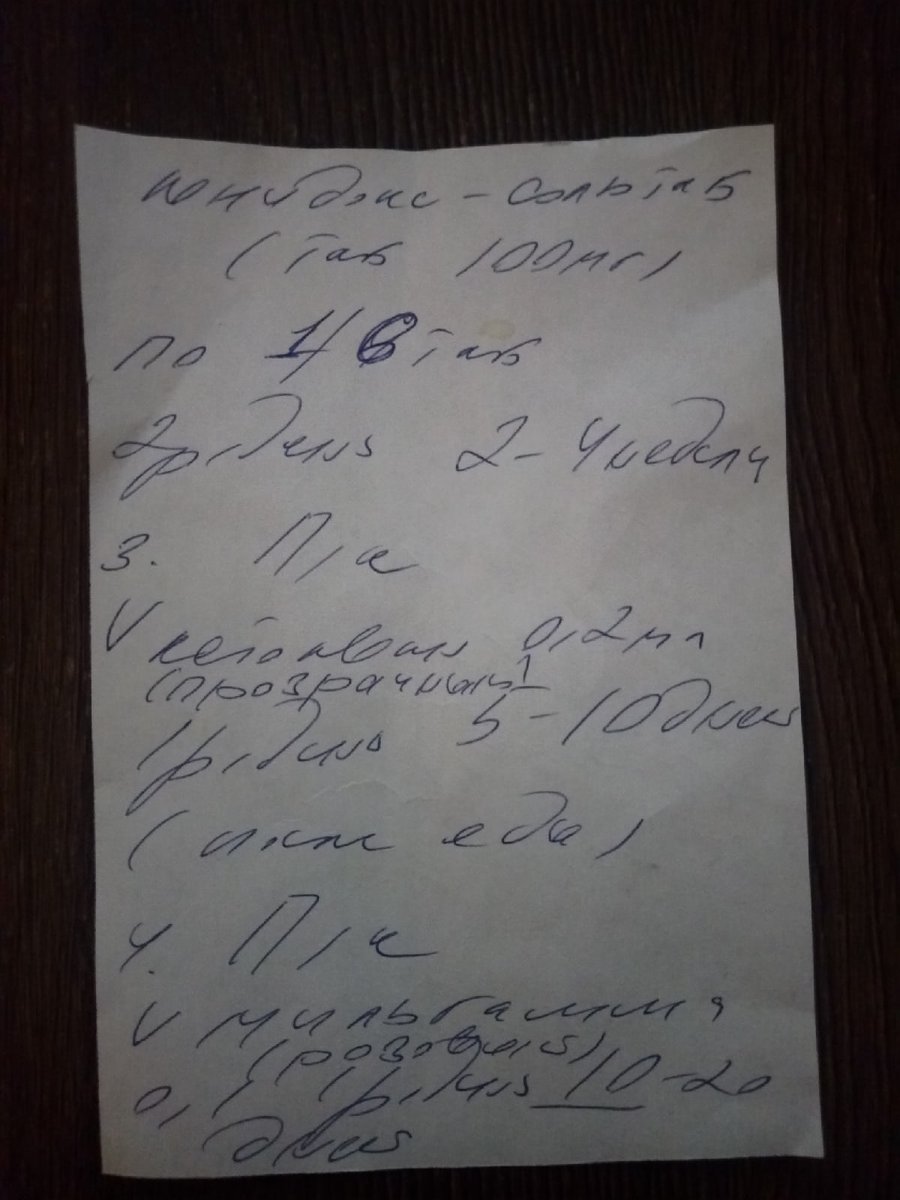 юнидокс - сольтаб
(таб 100мг)
по 1/6 таб
2р/день 2-4 недели
3. П/к
V кетоквин 0,2 мл
(прозрачный)
1р/день 5-10 дней
(после еды)
4. П/к
V мильгамма
(розовый)
0,1 1р/день 10-20
дней